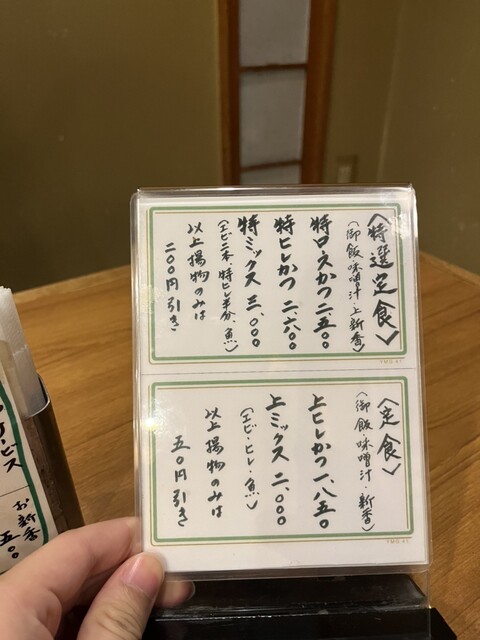 〈特選定食〉
(御飯味噌汁・上新香)
特ロースかつ 二、五〇〇
特ヒレかつ 二、六〇〇
特ミックス 三、〇〇〇
(エビ二本・特ヒレ半分・魚)
以上揚物のみは
二〇〇円引き
〈定食〉
(御飯味噌汁・新香)
上ヒレかつ 一、八五〇
上ミックス 二、〇〇〇
(エビ・ヒレ・魚)
以上揚物のみは
五〇円引き
ービス
お新香
五〇